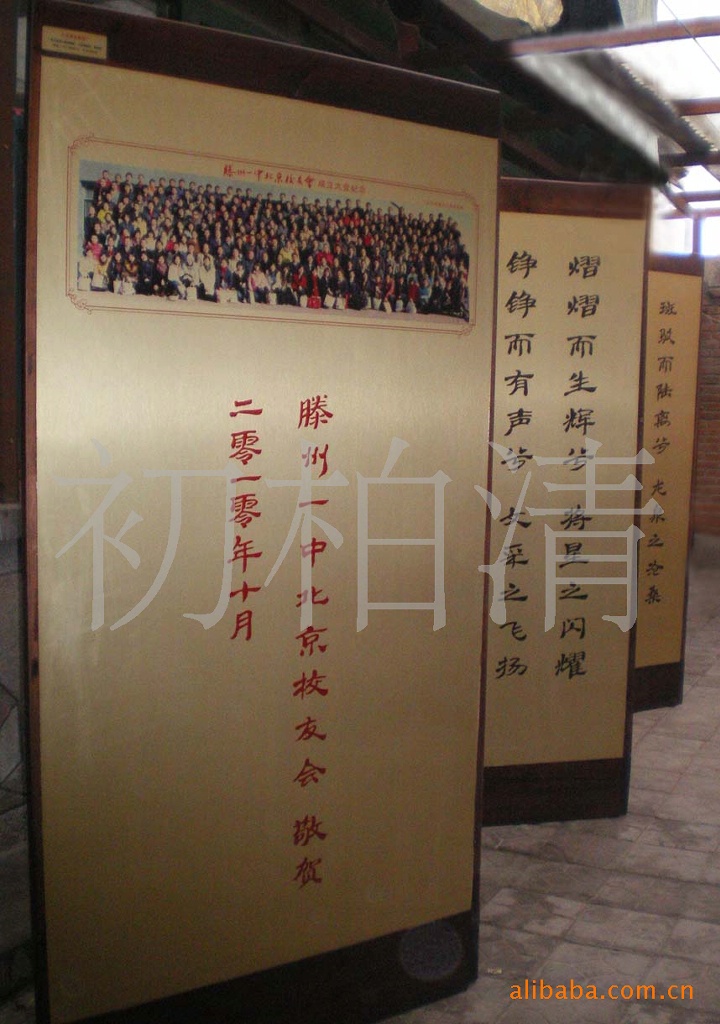 滕州一中北京校友會 成立大会纪念
滕州一中北京校友会 敬贺
二零一零年十月
熠熠而生辉兮 将星之闪耀
铮铮而有声兮 文采之飞扬
斑驳而陆离兮 龙泉之沧桑
初柏清
alibaba.com.cn